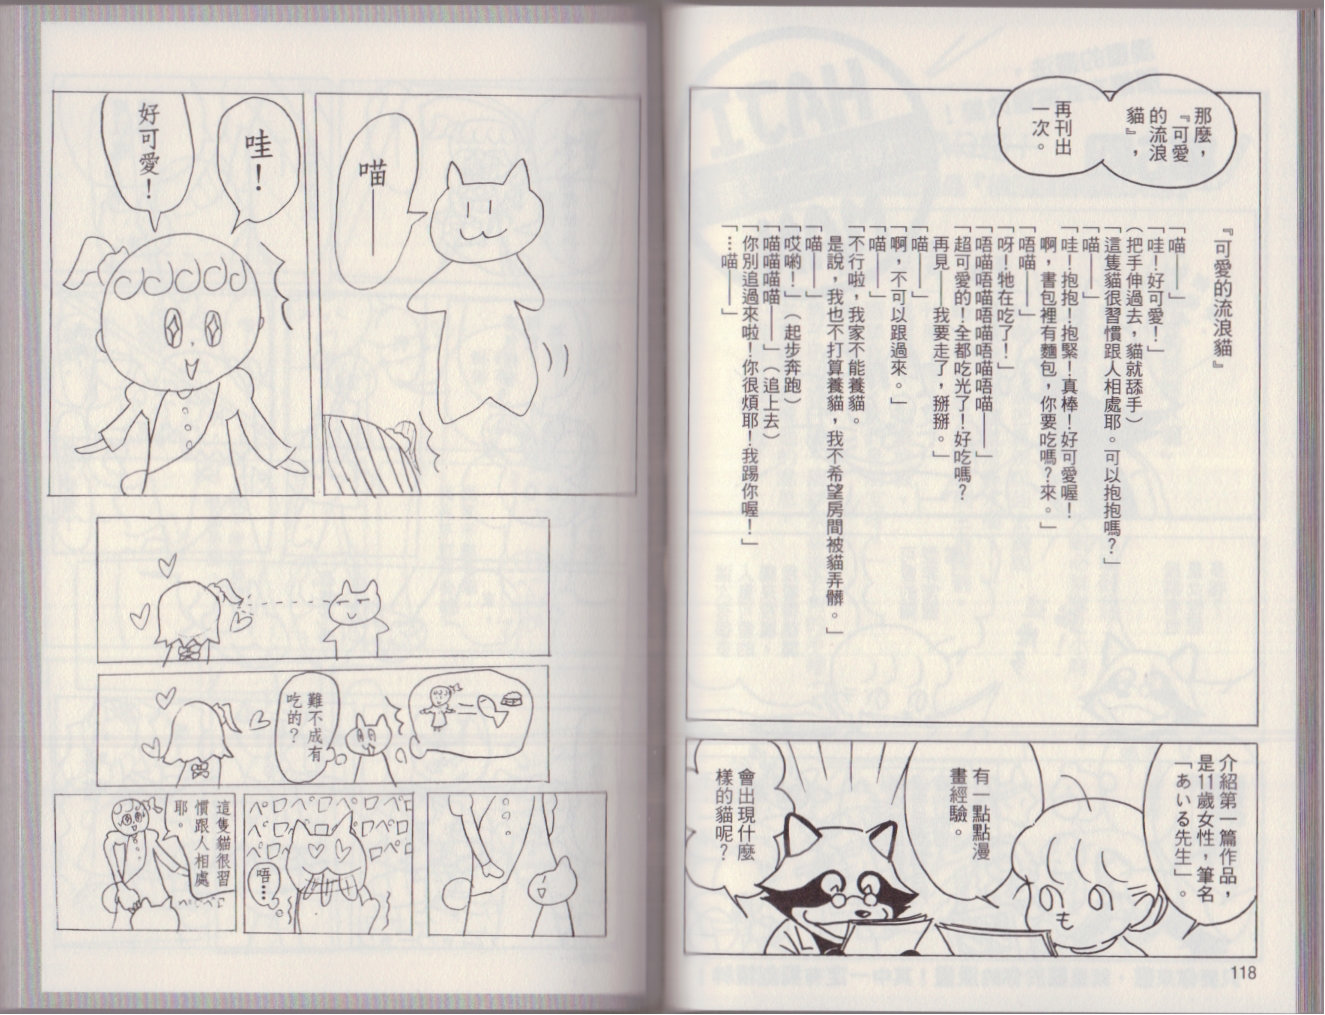 那麼，
『可愛
的流浪
貓』，
再刊出
一次。
『可愛的流浪貓』
「喵——」
「哇！好可愛！」
（把手伸過去，貓就舔手）
「這隻貓很習慣跟人相處耶。可以抱抱嗎？」
「喵——」
「哇！抱抱！抱緊！真棒！好可愛喔！
啊，書包裡有麵包，你要吃嗎？來。」
「唔喵——」
「呀！牠在吃了！」
「唔喵唔喵唔喵唔喵唔喵——」
「超可愛的！全都吃光了！好吃嗎？
再見——我要走了，掰掰。」
「喵——」
「啊，不可以跟過來。」
「喵——」
「不行啦，我家不能養貓。
是說，我也不打算養貓，我不希望房間被貓弄髒。」
「喵——」
「哎喲！」（起步奔跑）
「喵喵喵喵——」（追上去）
「你別追過來啦！你很煩耶！我踢你喔！」
「…喵——」
介紹第一篇作品，
是11歲女性，筆名
「あいる先生」。
有一點點漫
畫經驗。
會出現什麼
樣的貓呢？
118
喵——
哇！
好可愛！
難不成有
吃的？
ペロペロペロペロペロ
唔…
這隻貓很習
慣跟人相處
耶。